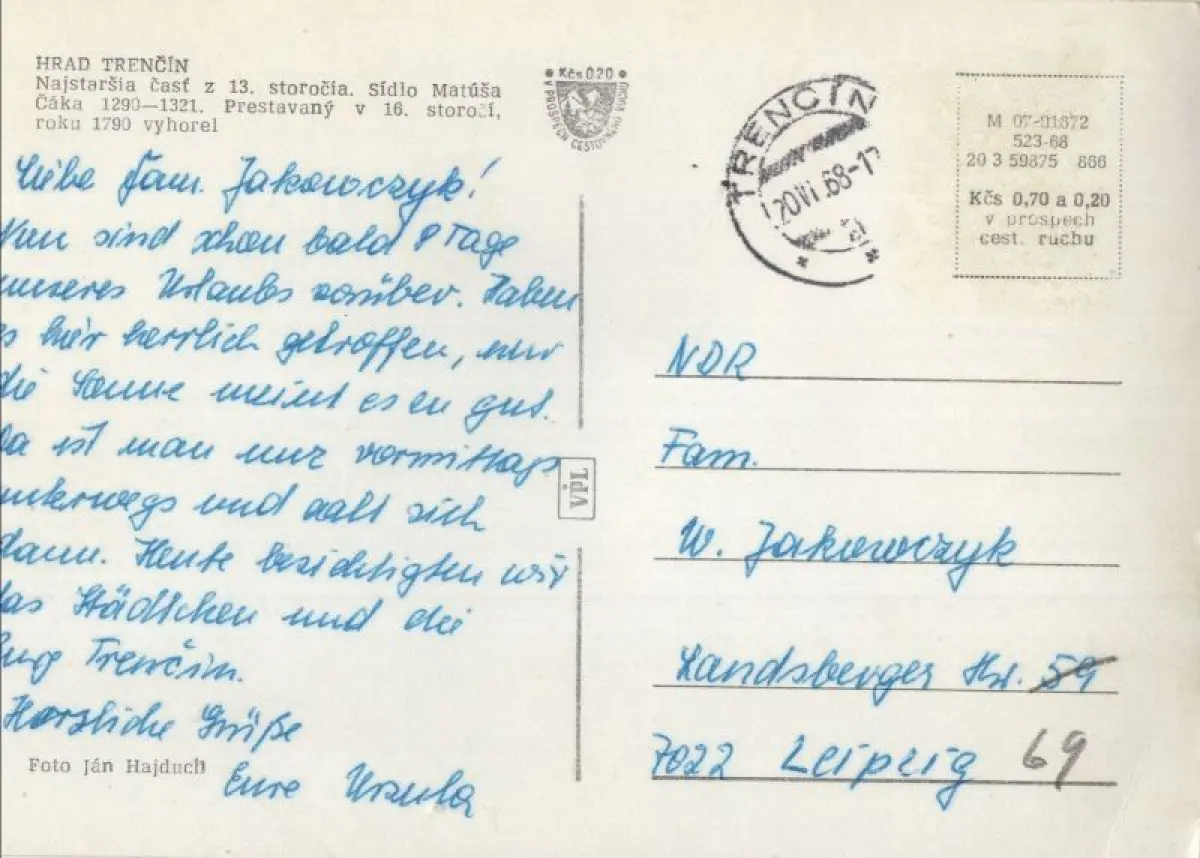 HRAD TRENČÍN
Najstaršia časť z 13. storočia. Sídlo Matúša
Čáka 1290—1321. Prestavaný v 16. storočí,
roku 1790 vyhorel
Kčs 0.20
V PROSPECH CESTOVNÉHO RUCHU
TRENČÍN
20.VI.68-17
M 07-91672
523-68
20 3 59875 886
Kčs 0,70 a 0,20
v prospech
cest. ruchu
Liebe Fam. Jakowczyk!
Nun sind schon bald 8 Tage
unseres Urlaubs vorüber. Haben
es hier herrlich getroffen, nur
die Sonne meint es zu gut.
Da ist man nur vormittags
unterwegs und aalt sich
dann. Heute besichtigten wir
das Städtchen und die
Burg Trenčín.
Herzliche Grüße
Eure Ursula
Foto Ján Hajduch
VPL
NDR
Fam.
W. Jakowczyk
Landsberger Str. 59
7022 Leipzig 69